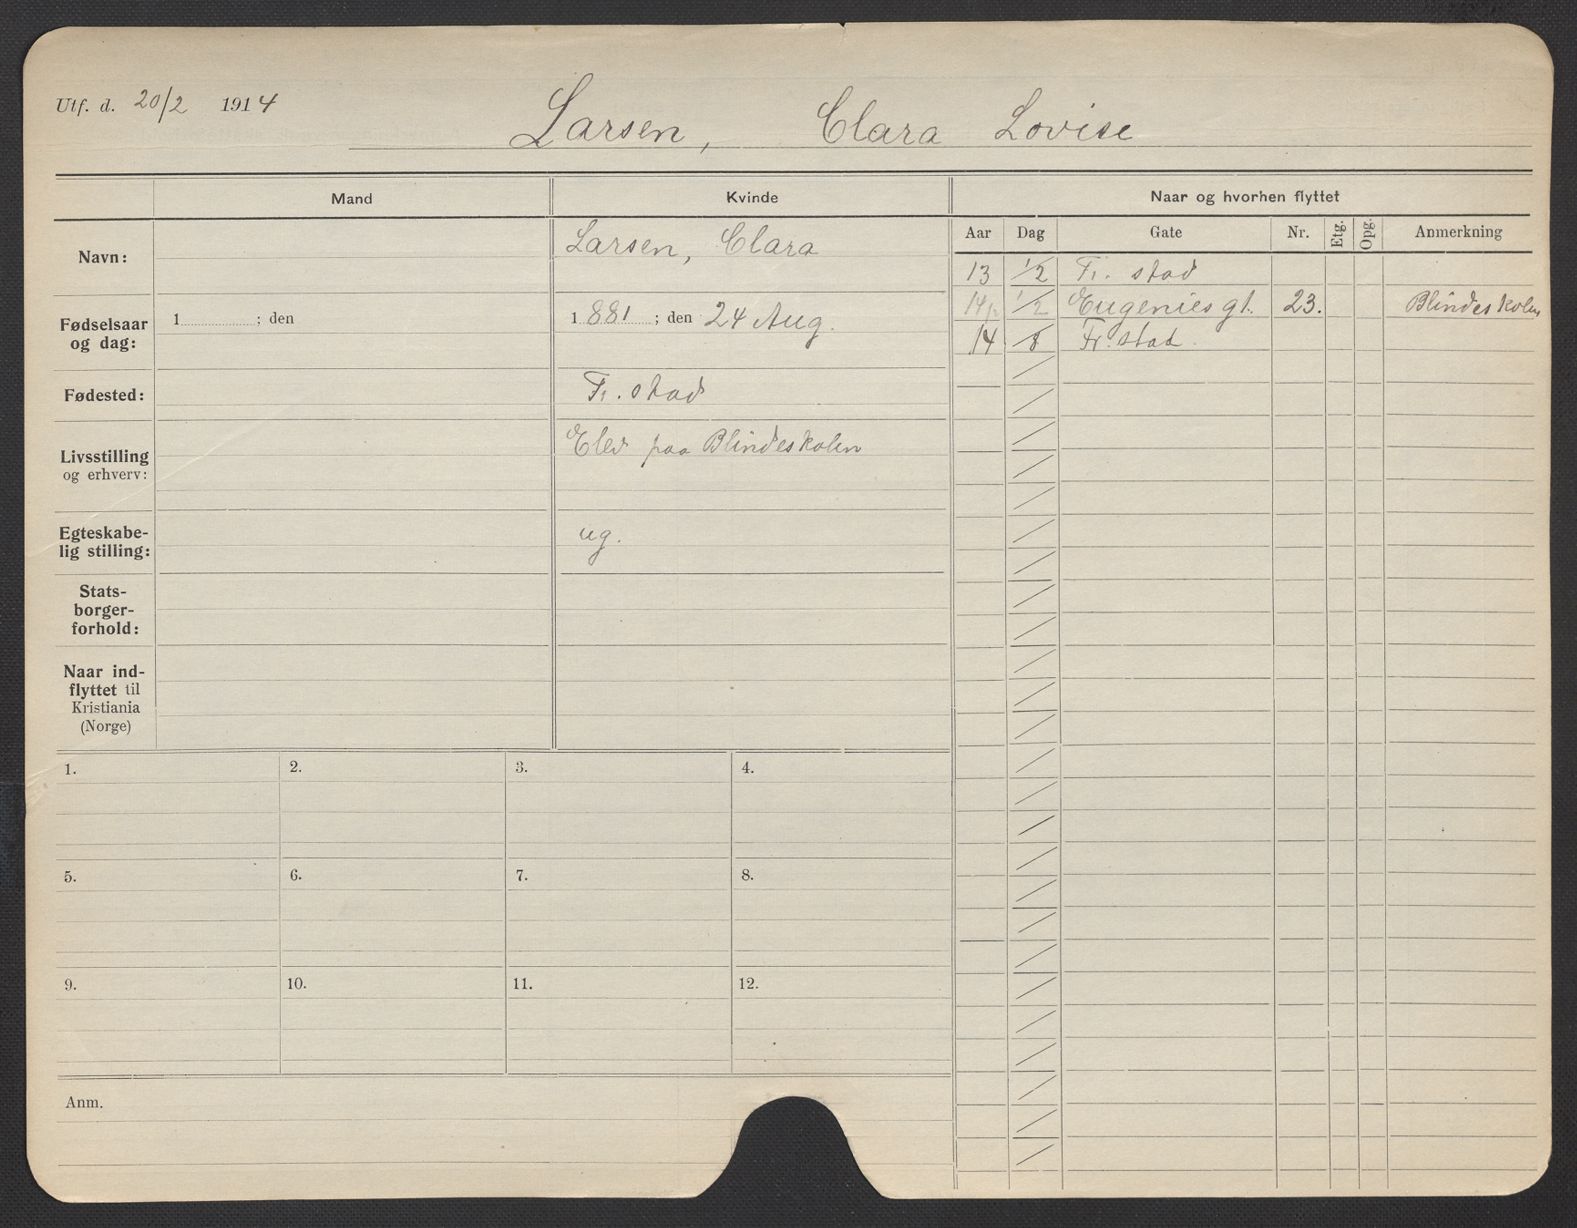 Utf. d. 20/2 1914
Larsen, Clara Lovise
Mand
Kvinde
Naar og hvorhen flyttet
Aar Dag Gate Nr. Etg. Opg. Anmerkning
Navn:
Larsen, Clara
Fødselsaar
og dag:
1 ; den
1 881 ; den 24 Aug.
Fødested:
Fr. stad
Livsstilling
og erhverv:
Elev paa Blindeskolen
Egteskabe-
lig stilling:
ug.
Stats-
borger-
forhold:
Naar ind-
flyttet til
Kristiania
(Norge)
13 1/2 Fr. stad
14 1/2 Eugenies gt. 23. Blindeskolen
14 /8 Fr. stad.
1. 2. 3. 4.
5. 6. 7. 8.
9. 10. 11. 12.
Anm.